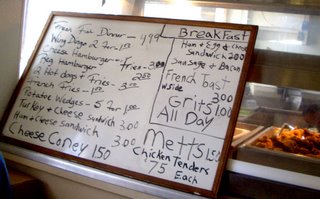 Fish Dinner - 499
Wing Dings 2 for 1.00
Cheese Hamburger -
Reg Hamburger Fries - 3.00
2 Hot dogs + Fries - 2.50
French Fries - 1.00
Potatoe Wedges - 5 for 1.00
Turkey + Cheese Sandwich 3.00
Ham + Cheese Sandwich 300
Cheese Coney 150
Breakfast
Ham + Egg + Cheese
Sandwich 2.50
Sausage + Bacon
French Toast
w side 300
Grits 1.00
All Day
Metts 1.50
Chicken Tenders
75 Each